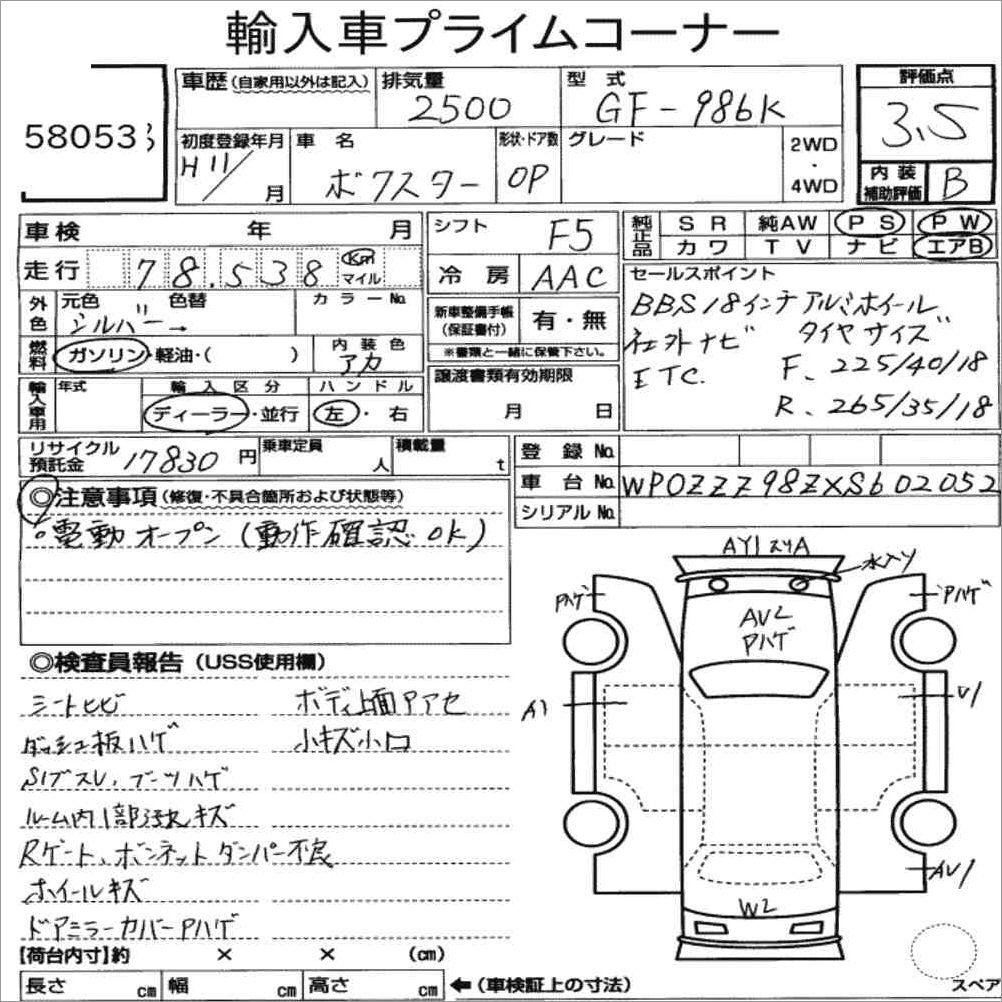 輸入車プライムコーナー
58053
車歴(自家用以外は記入)
排気量
2500
型式
GF-986K
評価点
3.5
初度登録年月
H11/
月
車名
ボクスター
形状・ドア数
OP
グレード
2WD
・
4WD
内装
補助評価
B
車検 年 月
走行 78.538 Km マイル
外色
元色 色替
シルバー→
カラーNo.
燃料
ガソリン・軽油・( )
内装色
アカ
輸入車用
年式
輸入区分
ディーラー・並行
ハンドル
左・右
シフト
F5
冷房
AAC
新車整備手帳
(保証書付)
有・無
※書類と一緒に保管下さい。
譲渡書類有効期限
月 日
純正品
SR 純AW PS PW
カワ TV ナビ エアB
セールスポイント
BBS18インチアルミホイール
社外ナビ タイヤサイズ
ETC. F. 225/40/18
R. 265/35/18
リサイクル
預託金
17830円
乗車定員
人
積載量
t
登録No.
車台No. WP0ZZZ98ZXS602052
シリアルNo.
◎注意事項(修復・不具合箇所および状態等)
電動オープン(動作確認OK)
AY1
水入り
Pハゲ
Pハゲ
AV2
Pハゲ
A1
V1
AV1
W2
スペア
◎検査員報告(USS使用欄)
シートヒビ ボディ上面アアセ
ダッシュ板ハゲ 小キズ小凹
SIブスレ、ブーツハゲ
ルーム内1部欠キズ
Rゲート、ボンネットダンパー不良
ホイールキズ
ドアミラーカバーPハゲ
【荷台内寸】約 × × (cm)
長さ cm 幅 cm 高さ cm ←(車検証上の寸法)